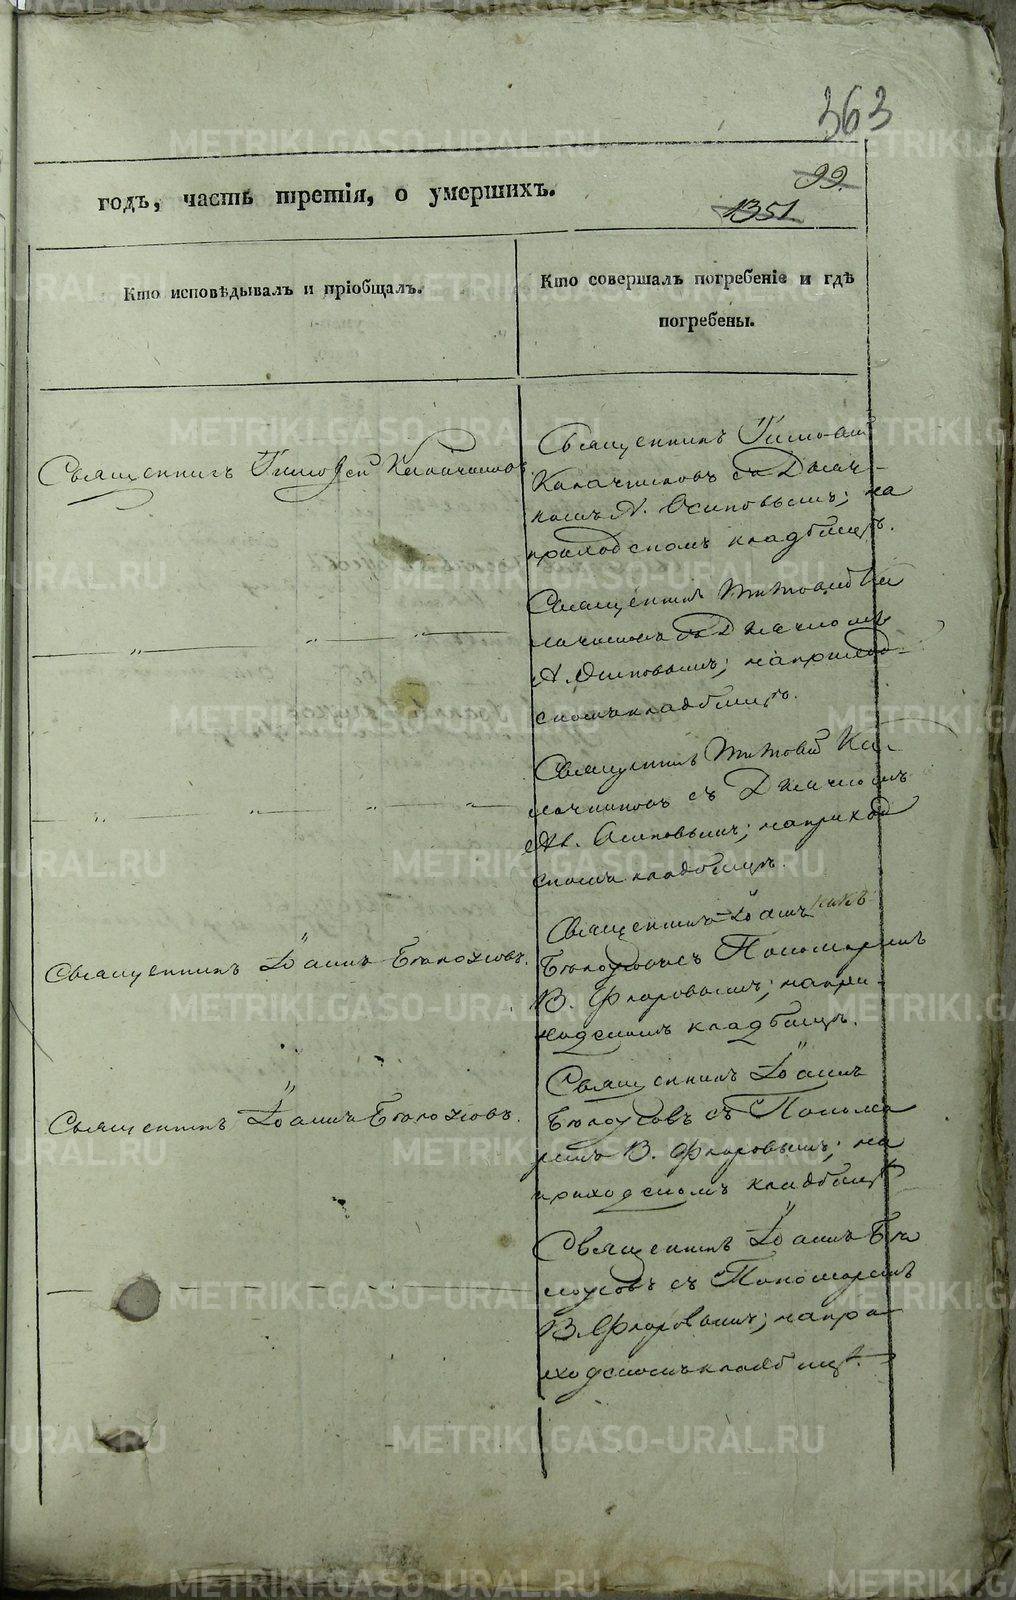 363
годъ, часть третія, о умершихъ.
99
1351
Кто исповѣдывалъ и пріобщалъ.
Кто совершалъ погребеніе и гдѣ
погребены.
Священникъ Тимоѳей Калачниковъ
Священникъ Тимоѳей
Калачниковъ съ Дьяч-
комъ А. Осиповымъ; на
приходскомъ кладбищѣ.
Священникъ Тимоѳей Ка
лачниковъ съ Дьячкомъ
А. Осиповымъ; на приход-
скомъ кладбищѣ.
Священникъ Тимоѳей Ка-
лачниковъ съ Дьячкомъ
Ал. Осиповымъ; на приход
скомъ кладбищѣ.
Священникъ Іоаннъ Бѣлоусовъ.
Священникъ Іоаннъ
Бѣлоусовъ съ Пономаремъ
В. Флоровымъ; на при-
ходскомъ кладбищѣ.
Священникъ Іоаннъ Бѣлоусовъ.
Священникъ Іоаннъ
Бѣлоусовъ съ Понома
ремъ В. Флоровымъ; на
приходскомъ кладбищѣ
Священникъ Іоаннъ Бѣ
лоусовъ съ Пономаремъ
В. Флоровымъ; на при
ходскомъ кладбищѣ.
METRIKI.GASO-URAL.RU